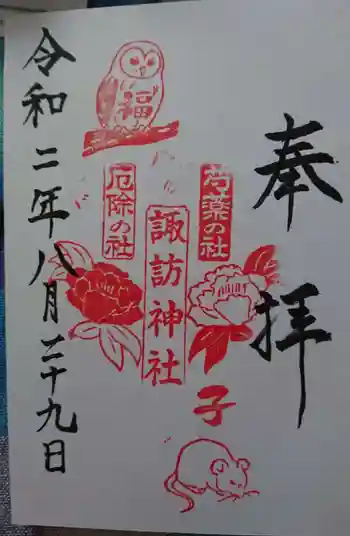 奉拝
福
芍薬の社
諏訪神社
厄除の社
子
令和二年八月二十九日